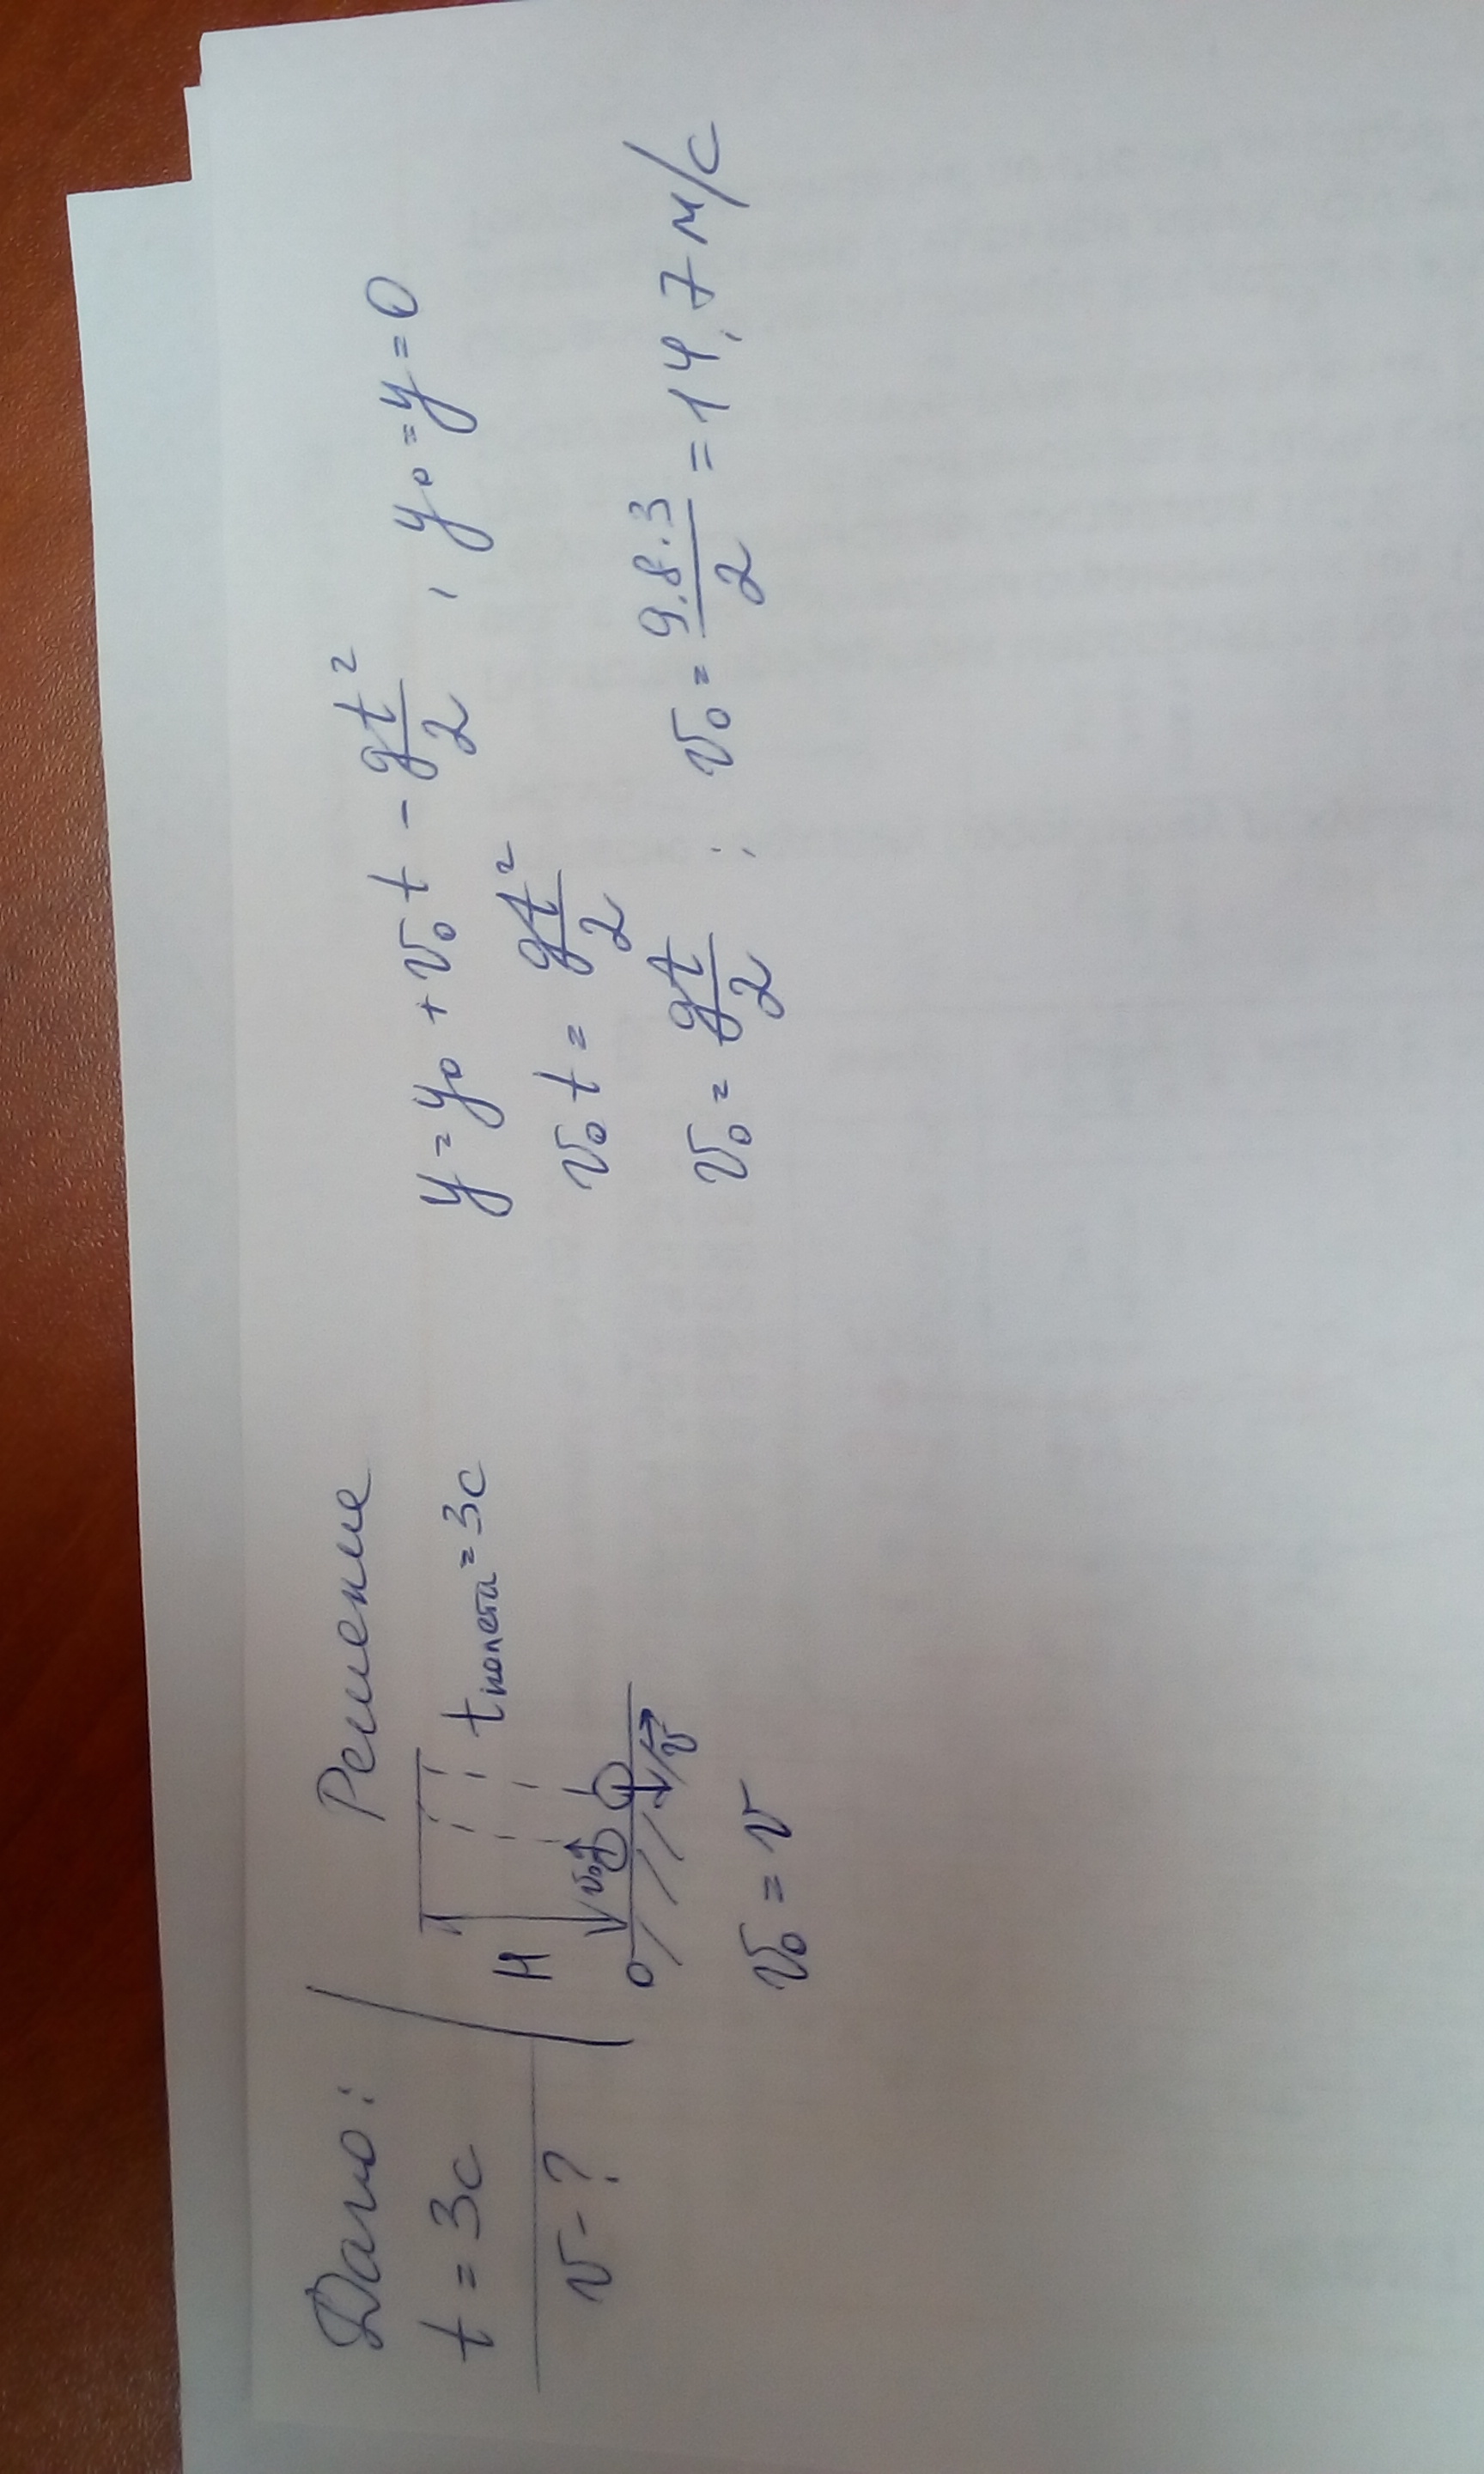 Дано:
t = 3с
v - ?
Решение
H
v₀
t полета = 3с
0
v
v₀ = v
y = y₀ + v₀t - gt²/2 , y₀ = y = 0
v₀t = gt²/2
v₀ = gt/2 ; v₀ = 9.8·3/2 = 14,7 м/с